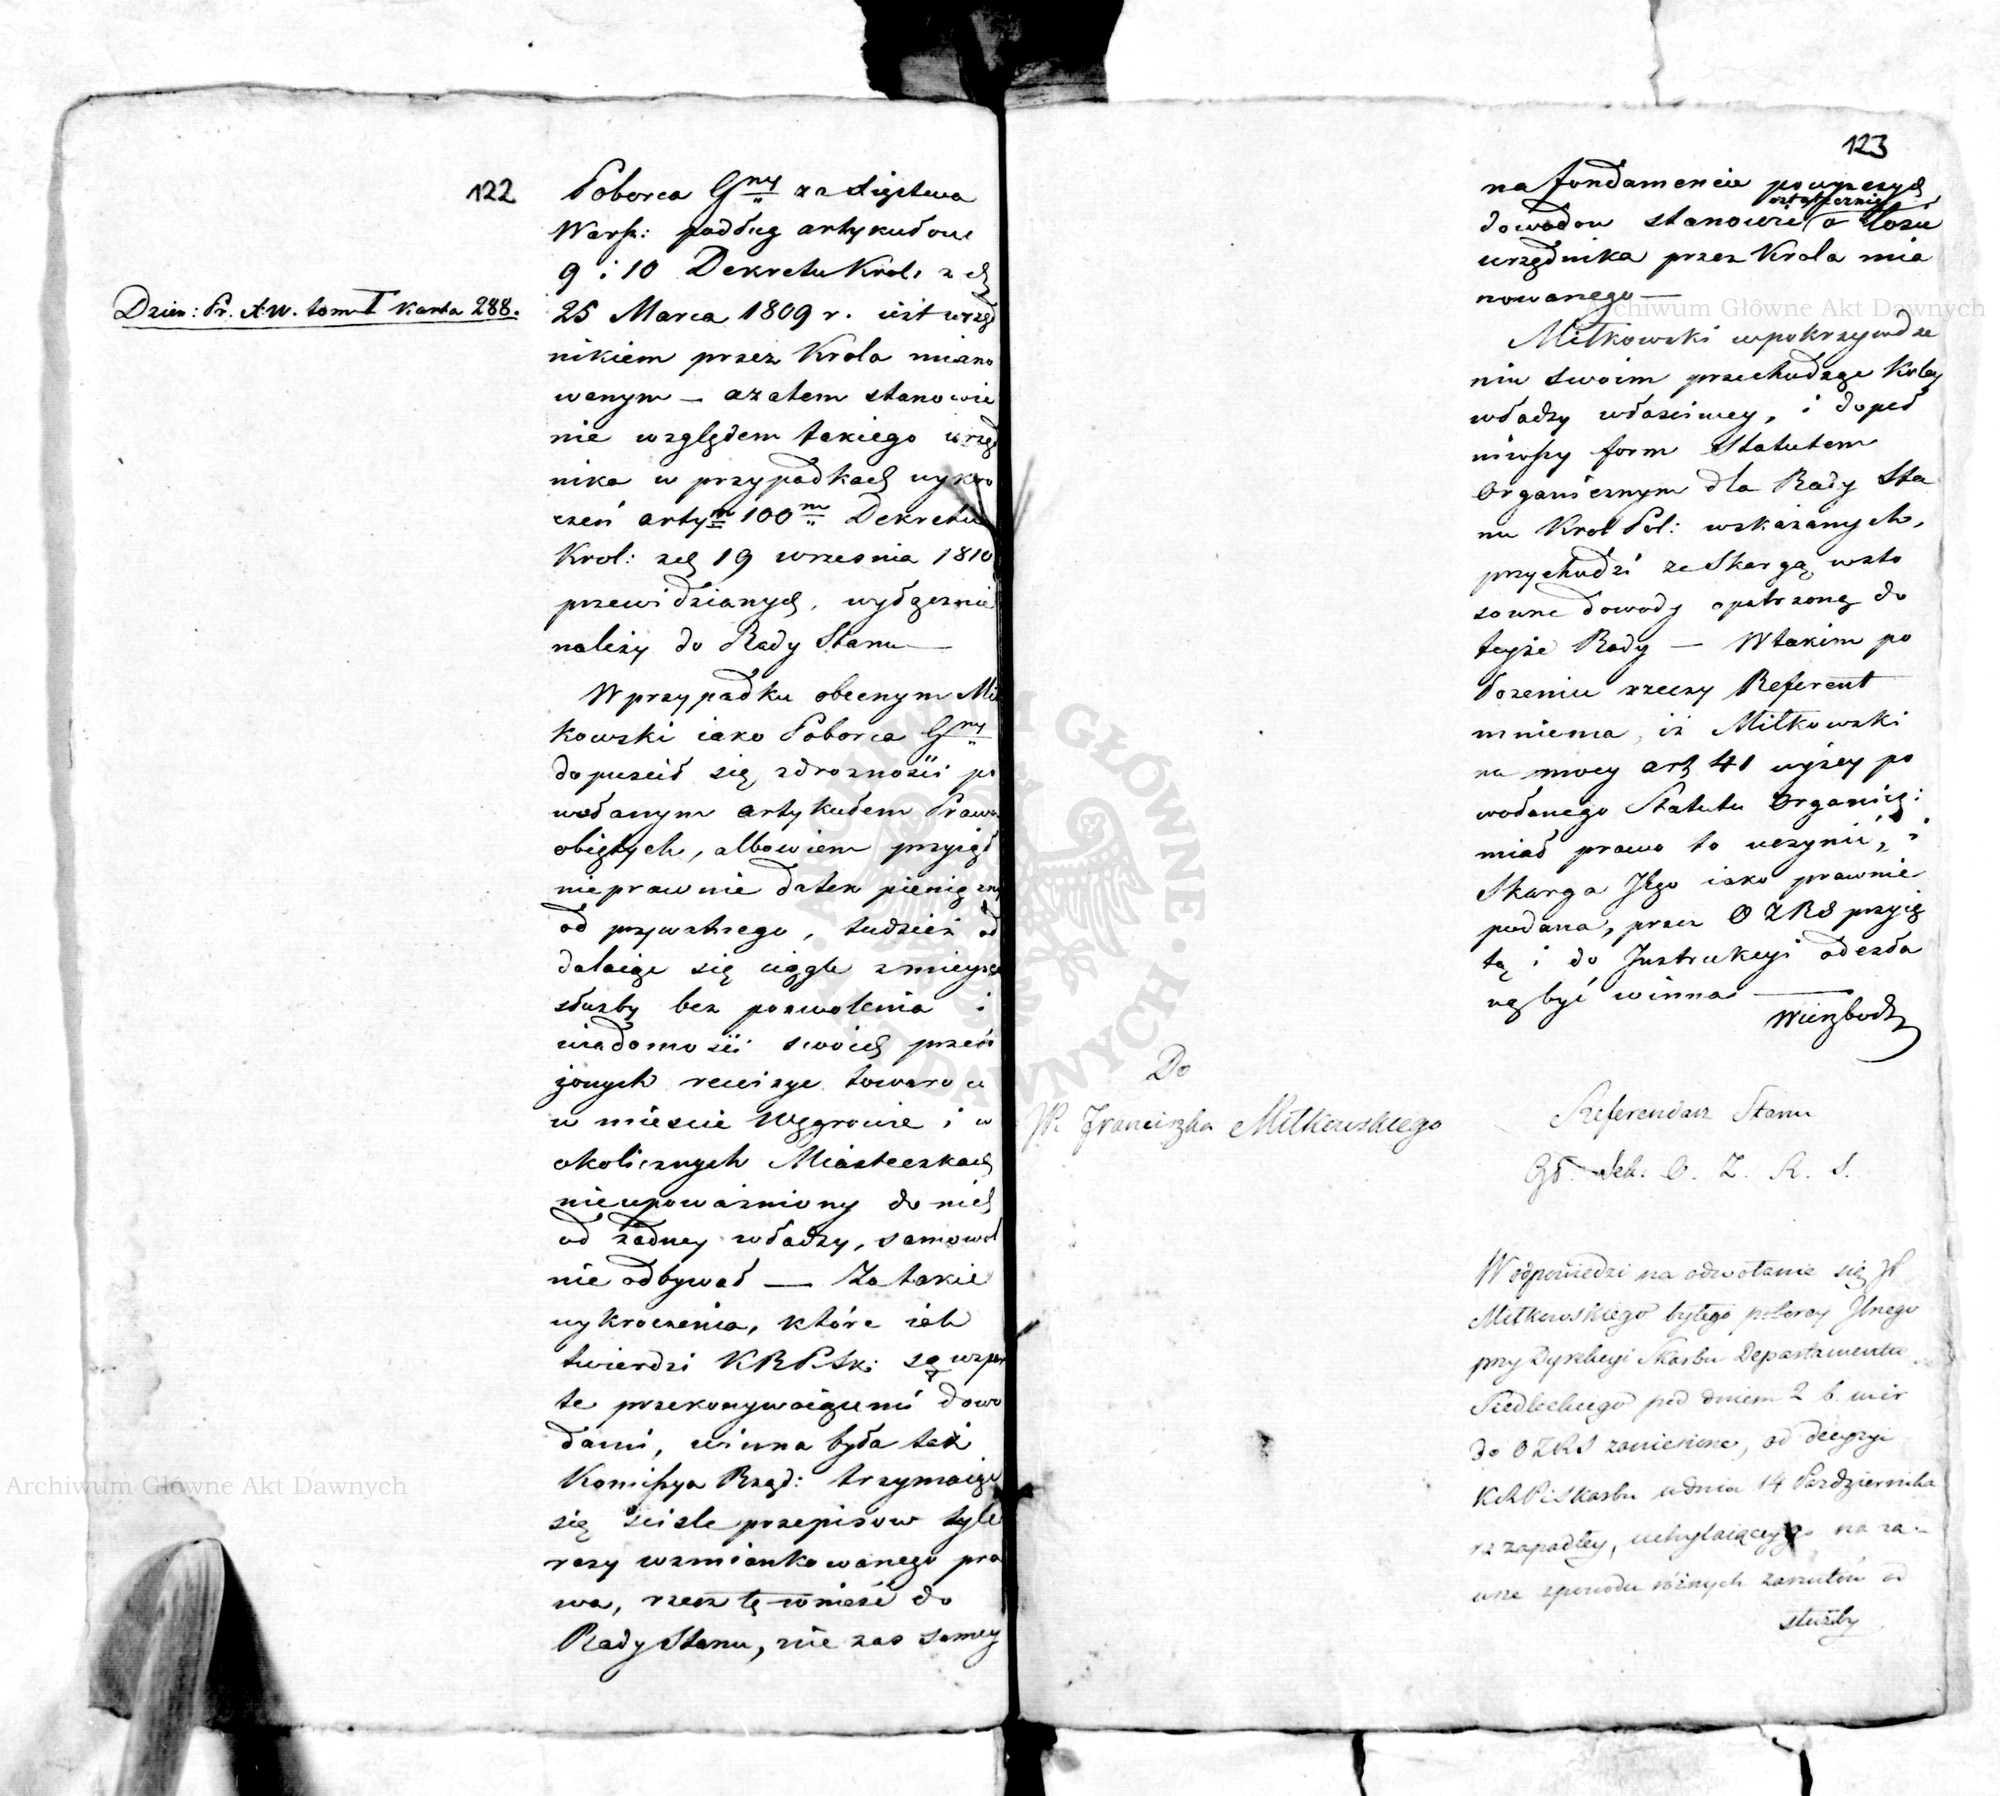 122
Dzien: Pr. X W. tom I karta 288.
Poborca Gny za Xięstwa
Warsz: podług artykułow
9 i 10 Dekretu Krol: z d
25 Marca 1809 r. iest urzęd
nikiem przez Krola miano
wanym — azatem stanowie
nie względem takiego urzęd
nika w przypadkach wykro
czeń artym 100m Dekretu
Krol: zd 19 wrzesnia 1810
przewidzianych, wyłącznie
należy do Rady Stanu —
W przypadku obecnym Mił
kowski iako Poborca Gny
dopuscił się zdrożności po
wołanym artykułem Prawa
obiętych, albowiem przyiął
nieprawnie datek pieniężny
od prywatnego, tudzież od
dalaiąc się ciągle z mieysca
służby bez pozwolenia i
wiadomości swoich przeło
żonych rewizye towarow
w miescie Węgrowie i w
okolicznych Miasteczkach
nieupoważniony do nich
od żadney władzy, samowol
nie odbywał — Za takie
wykroczenia, które iak
twierdzi KRPSk: są wspar
te przekonywaiącemi dowo
dami, winna była też
Komissya Rząd: trzymaiąc
się ściśle przepisow tyle
razy wzmiankowanego pra
wa, rzecz tę wnieść do
Rady Stanu, nie zas samey
123
na fondamencie powyższych
ostatecznie
dowodow stanowić o losie
urzędnika przez Krola mia
nowanego —
Miłkowski w pokrzywdze
niu swoim przechodząc koley
władzy właściwey, i dopeł
niwszy form Statutem
Organicznym dla Rady Sta
nu Krol Pol: wskazanych,
przychodzi ze Skargą w sto
sowne dowody opatrzoną do
teyże Rady — W takim po
łożeniu rzeczy Referent
mniema, iż Miłkowski
na mocy art 41 wyżey po
wołanego Statutu Organicz:
miał prawo to uczynić, i
Skarga Jego iako prawnie
podana, przez OZRS przyię
tą i do Instrukcyi odesła
ną być winna —
Wierzbodz
Do
W. Franciszka Miłkowskiego
Referendarz Stanu
Gł. Sek. O. Z. R. S.
W odpowiedzi na odwołanie się W
Miłkowskiego byłego poborcy Jlnego
przy Dyrekcyi Skarbu Departamentu
Siedleckiego pod dniem 2 b. m i r
do OZRS zaniesione, od decyzyi
KRPiSkarbu w dniu 14 Października
rz zapadłey, uchylaiącey go na za
wsze z powodu różnych zarzutów od
służby